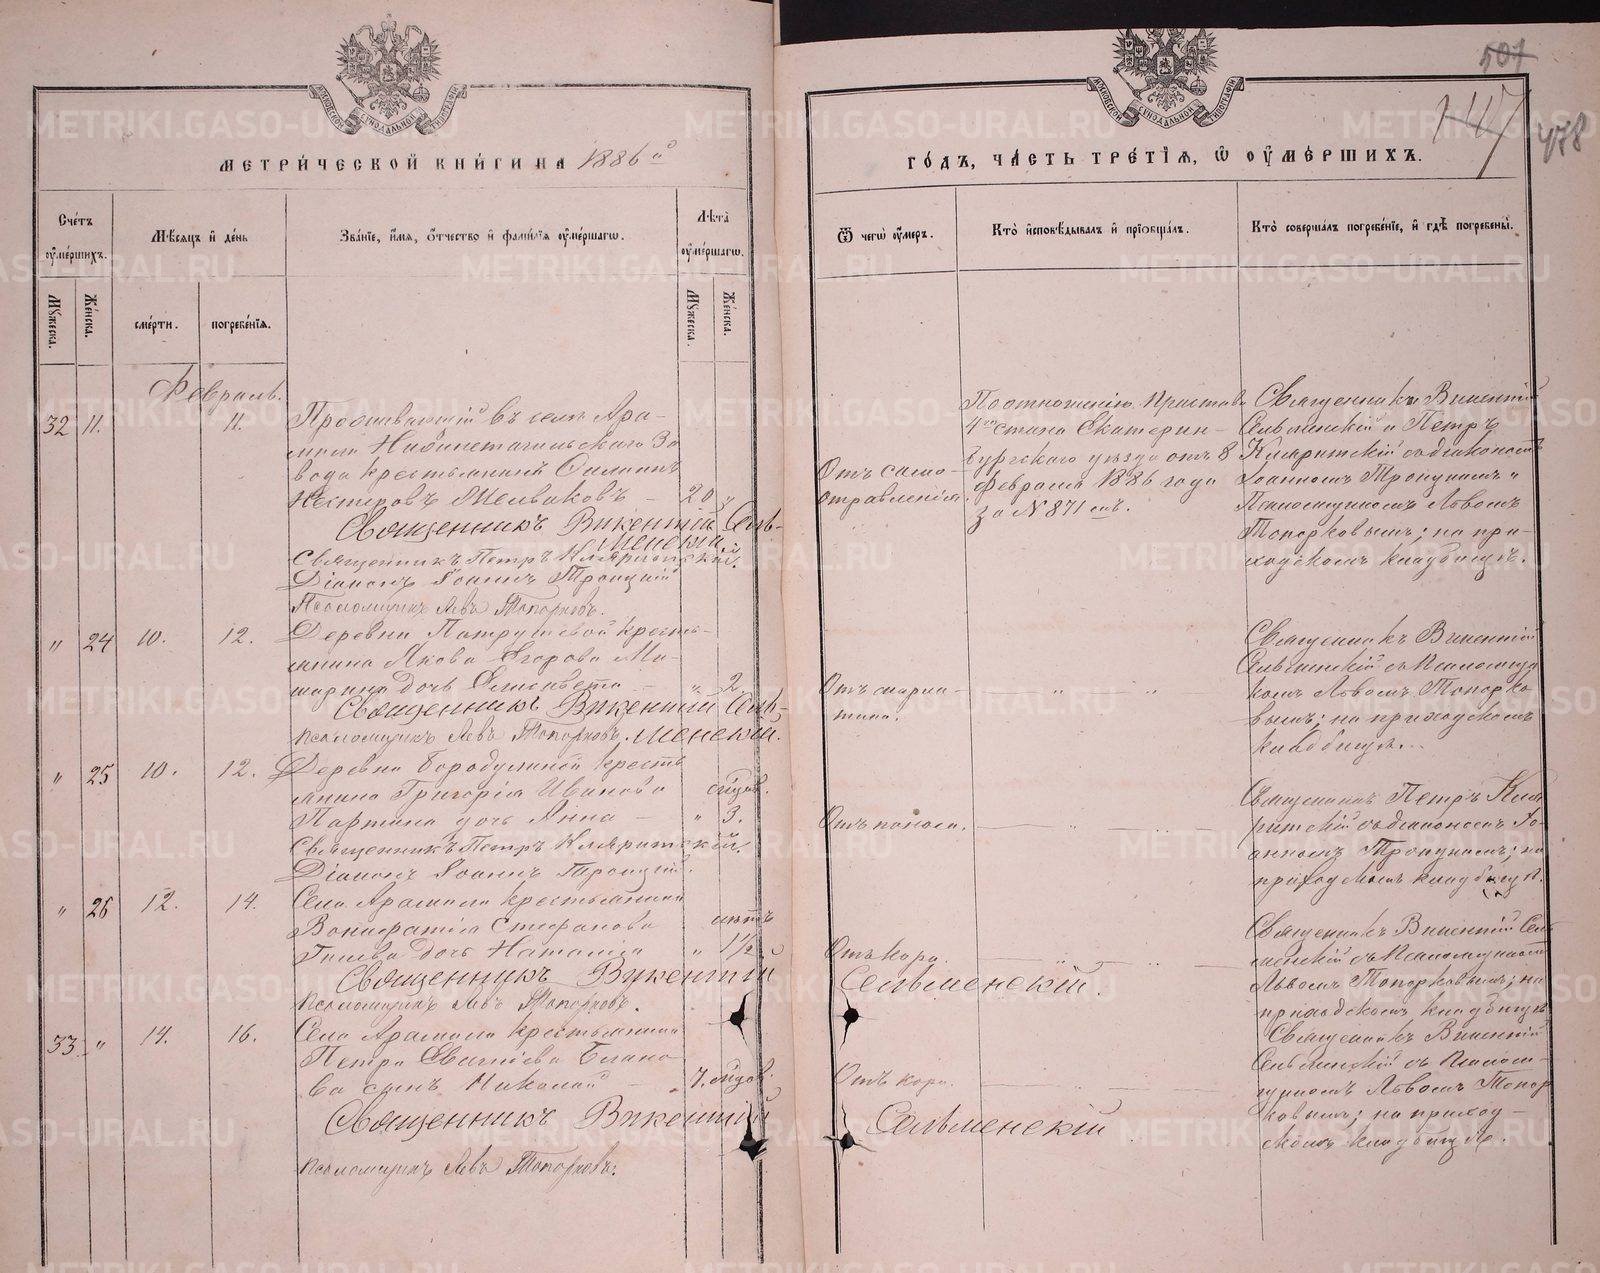 МЕТРИ́ЧЕСКОЙ КНИ́ГИ НА 1886 й
ГО́ДЪ, ЧА́СТЬ ТРЕ́ТІѦ, Ѡ ОУ҆МЕ́РШИХЪ.
507
147
478
Сче́тъ оу҆ме́ршихъ.
Мѣ́сѧцъ и҆ де́нь
Зва́нїе, и҆́мѧ, ѻ҆́тчество и҆ фами́лїѧ оу҆ме́ршагѡ.
Лѣ́та оу҆ме́ршагѡ.
Ѿ чегѡ̀ оу҆́меръ.
Кто̀ и҆сповѣ́дывалъ и҆ прїѡбща́лъ.
Кто̀ соверша́лъ погребе́нїе, и҆ гдѣ̀ погребены̀.
Му́жеска.
Же́нска.
сме́рти.
погребе́нїѧ.
Му́жеска.
Же́нска.
Февраль.
32 11. 11.
Проживающій въ селѣ Ара-
милѣ
За
вода крестьянинъ
Нестеровъ Мельваковъ — 20 "
Священникъ Викентій Сель-
менскій
Священникъ Петръ Кларитскій.
Діаконъ Іоаннъ Троицкій
Псаломщикъ Левъ Топорковъ.
Отъ само-
отравленія.
По отношенію Пристава
4го стана Екатерин-
бургскаго уѣзда отъ 8
Февраля 1886 года
за N 871 мъ.
Священникъ Викентій
Сельменскій и Петръ
Кларитскій съ діакономъ
Іоанномъ Троицкимъ и
Псаломщикомъ Львомъ
Топорковымъ; на при-
ходскомъ кладбищѣ.
" 24 10. 12.
Деревни Патрушевой кресть-
янина Якова Егорова Ма-
шарина дочь Елисавета — " 2.
Священникъ Викентій Сель-
менскій.
Псаломщикъ Левъ Топорковъ.
Отъ
" "
Священникъ Викентій
Сельменскій съ Псаломщи
комъ Львомъ Топорко
вымъ; на приходскомъ
кладбищѣ.
" 25 10. 12.
Деревни Бородулиной кресть
янина Григорія Иванова
Партина дочь Анна — " 3.
Священникъ Петръ Кларитскій.
Діаконъ Іоаннъ Троицкій.
Отъ поноса.
Священникъ Петръ Кла
ритскій съ діакономъ Іо-
анномъ Троицкимъ; на
приходскомъ кладбищѣ.
" 26 12. 14.
Села Арамили крестьянина
Вонифатія Стефанова
дочь Наталія " 1½
Священникъ Викентій Сельменскій.
Псаломщикъ Левъ Топорковъ.
Отъ кори.
Священникъ Викентій Сель
менскій съ Псаломщикомъ
Львомъ Топорковымъ; на
приходскомъ кладбищѣ
33 " 14. 16.
Села Арамили крестьянина
Петра
ва сынъ Николай —
Священникъ Викентій Сельменскій
Псаломщикъ Левъ Топорковъ.
Отъ кори.
Священникъ Викентій
Сельменскій съ Псалом-
щикомъ Львомъ Топор
ковымъ; на приход-
скомъ кладбищѣ.
METRIKI.GASO-URAL.RU